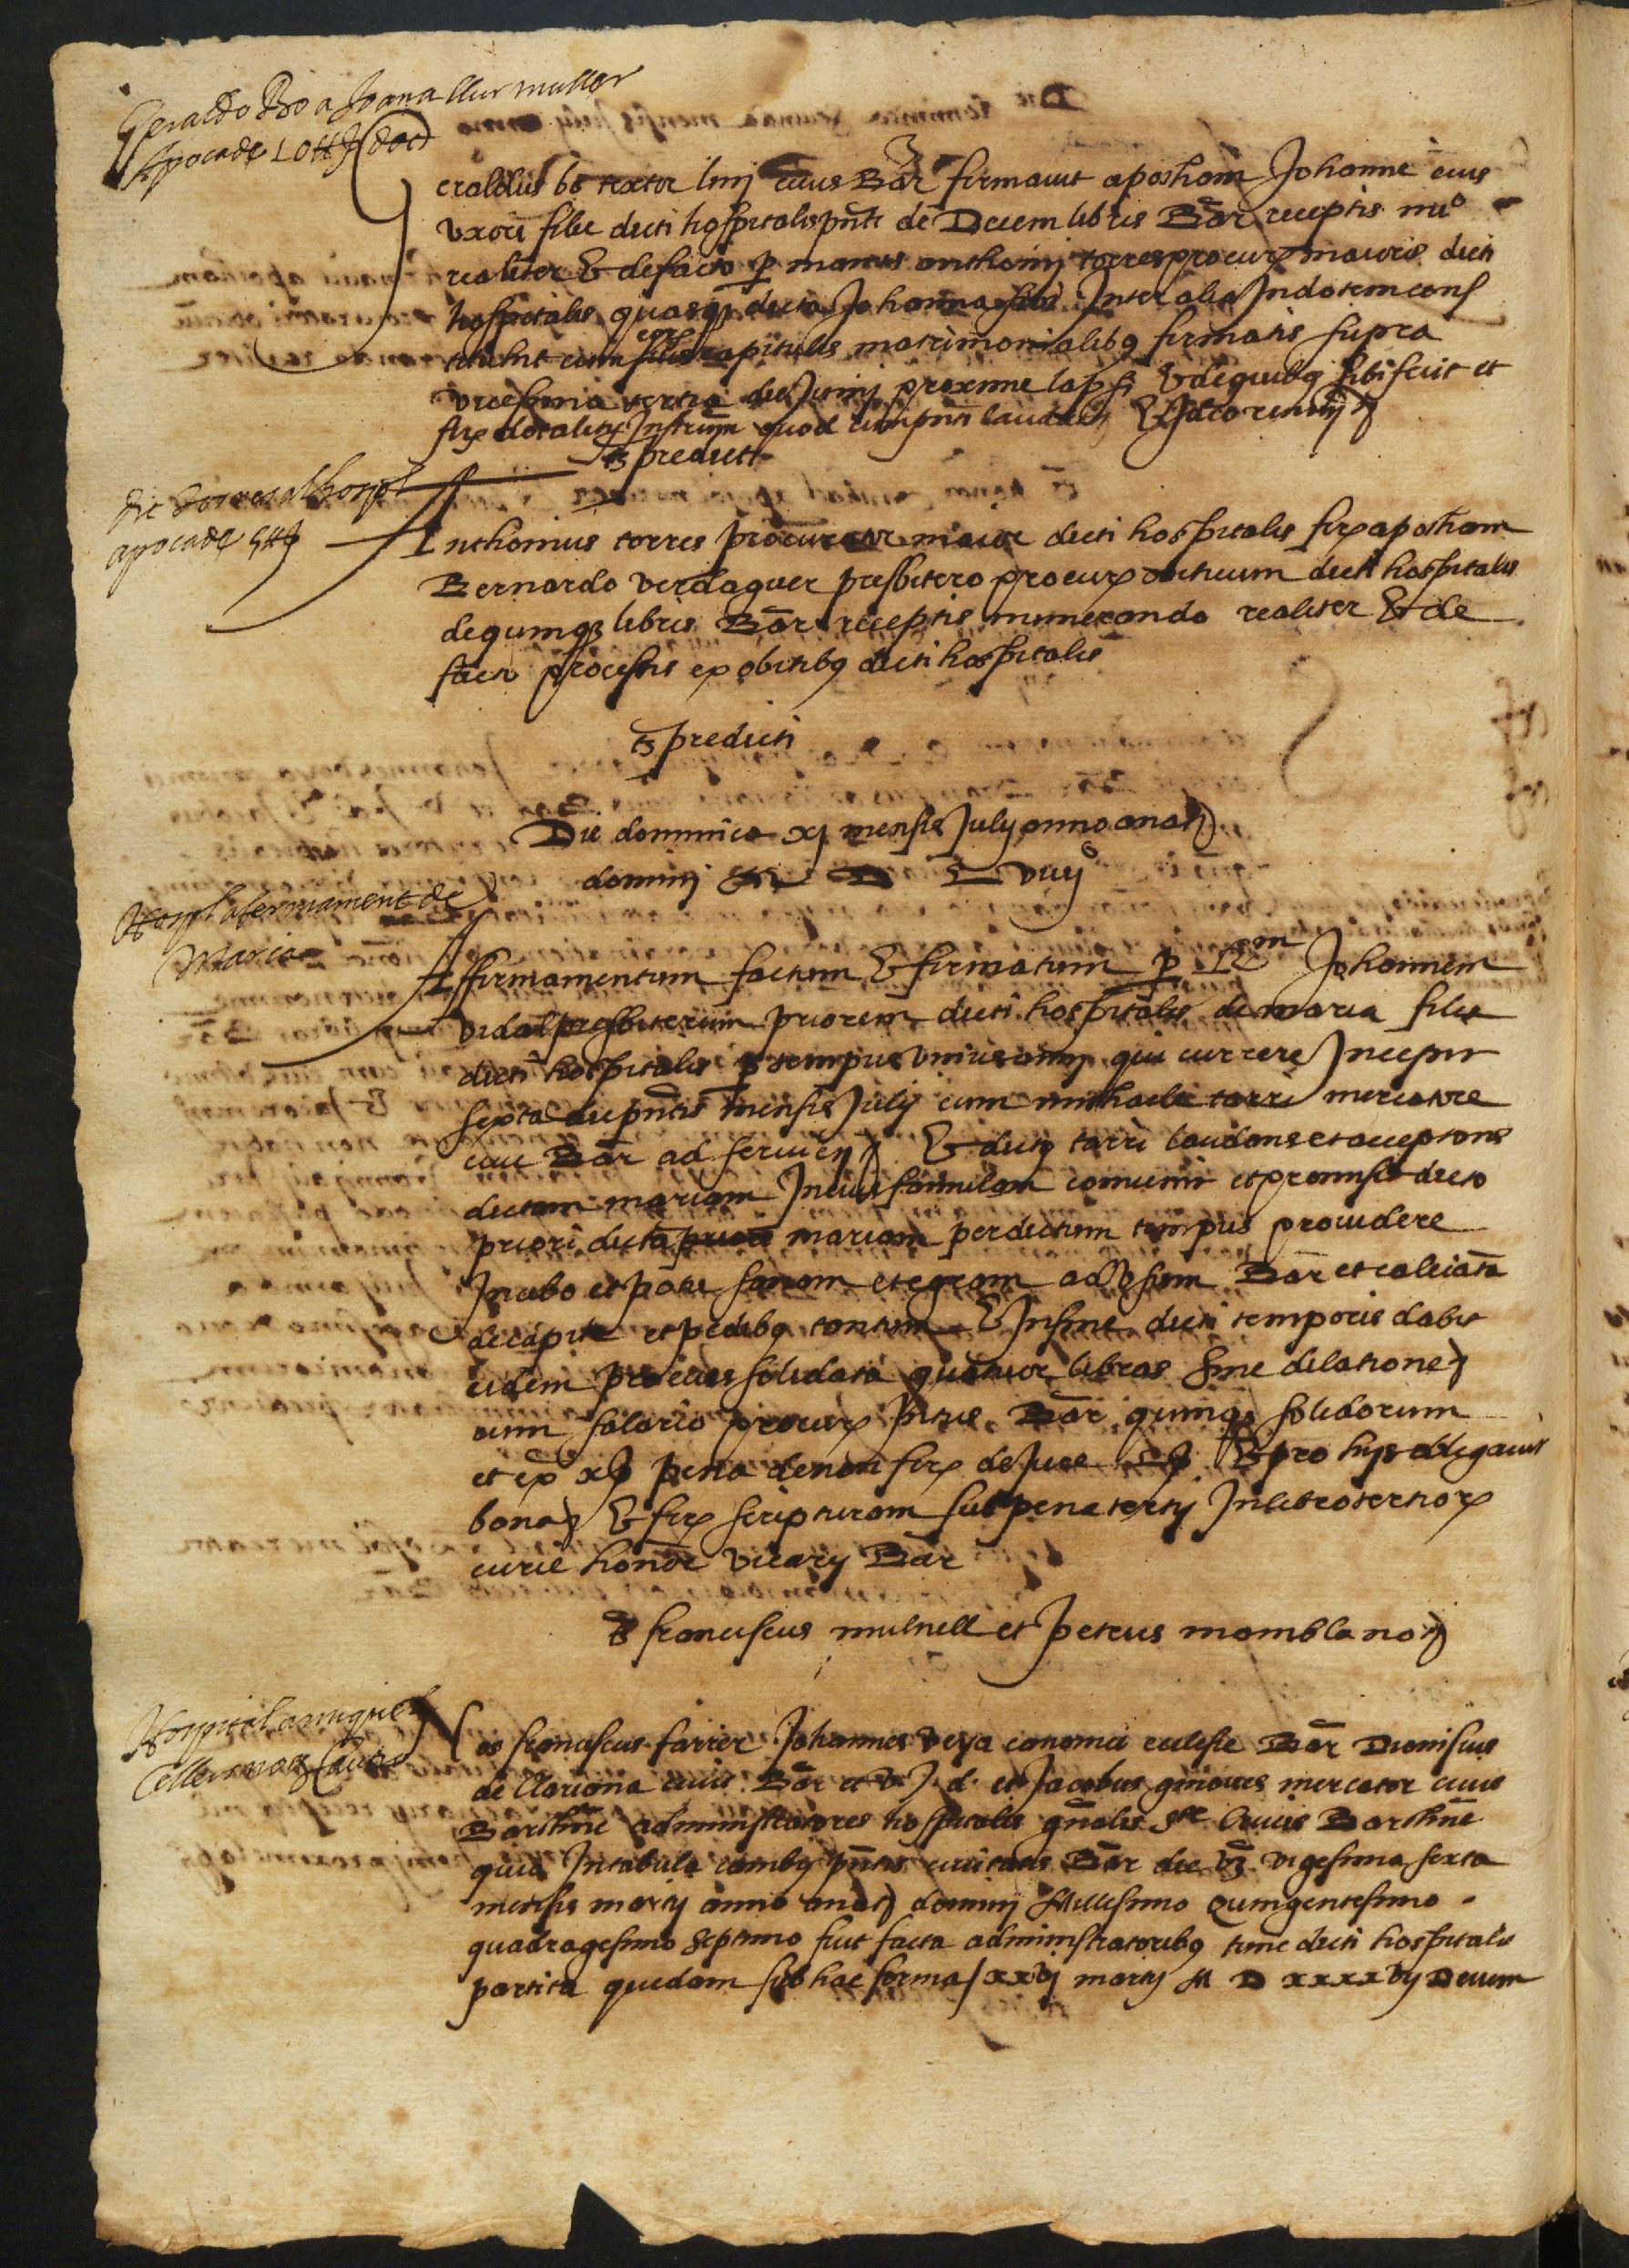 Geraldo Bo a Joana llur muller
Apoca de 10 ll (doct)
Geraldus bo textor linj civis Bar firmavit apocham Johanne eius
uxori filie dicti hospitalis pnti de Decem libris Bar receptis nuo
realiter & defacto p manus anthonij torres procur maioris dicti
hospitalis quasq dicta Johanna sibi Inter alia Indotem cons
tituhit cum capitulis matrimonialibq firmatis supra
vicesima tertia die Junij proxime lapsi & dequibq sibi fecit et
fir dotale Instrum quod cum pnti laudat & Ideo renun
ts predicti
torres al hospl
apoca de 5 ll
Anthonius torres procurator maior dicti hospitalis fir apocham
Bernardo verdaguer presbitero procur dicti hospitalis
de quinq libris Bar receptis numerando realiter & de
facto processis ex obitibq dicti hospitalis
ts predicti
Die dominica xj mensis Julij anno anat
dominj M D L viijo
Hospl afermament de
Maria
Affirmamentum factum & firmatum p Rm Johannem
vidal presbiterum priorem dicti hospitalis de maria filia
dicti hospitalis p tempus unius anni qui currere Incepit
sexta die pntis mensis Julij cum michaele tarri mercatore
cive Bar ad serviend & dictq tarri laudans et acceptans
dictam mariam In eius famulam convenit et promisit dicto
priori dicta priore mariam per dictum tempus providere
In cibo et potu sanam et egram ad Usum Bar et calciata
de capite et pedibq tantum & In fine dicti temporis dabit
eidem pro eius solidata quatuor libras sine dilatione
cum salario procur intus Bar quinq solidorum
et ex xs pena de non fir de Jure & pro hijs obligavit
bona & fir scripturam sub pena tertij In libro tertior
curie honor vicarij Bar
ts franciscus mulnell et petrus momblano
Hospital a miquel
Celler nos franciscus farrer Johannes veya canonici eclesie Bar Dionisius
de Clariona civis Bar et U J d et Jacobus ginoves mercator civis
Barchne administratores hospitalis gnalis Ste Crucis Barchne
quia In tabula cambij pntis civitatis Bar die vz vigesima sexta
mensis marcij anno anat dominj Millesimo Quingentesimo
quadragesimo septimo fuit facta administratoribq tunc dicti hospitalis
partita quedam sub hac forma / xxvj marcij M D xxxxvij Devem